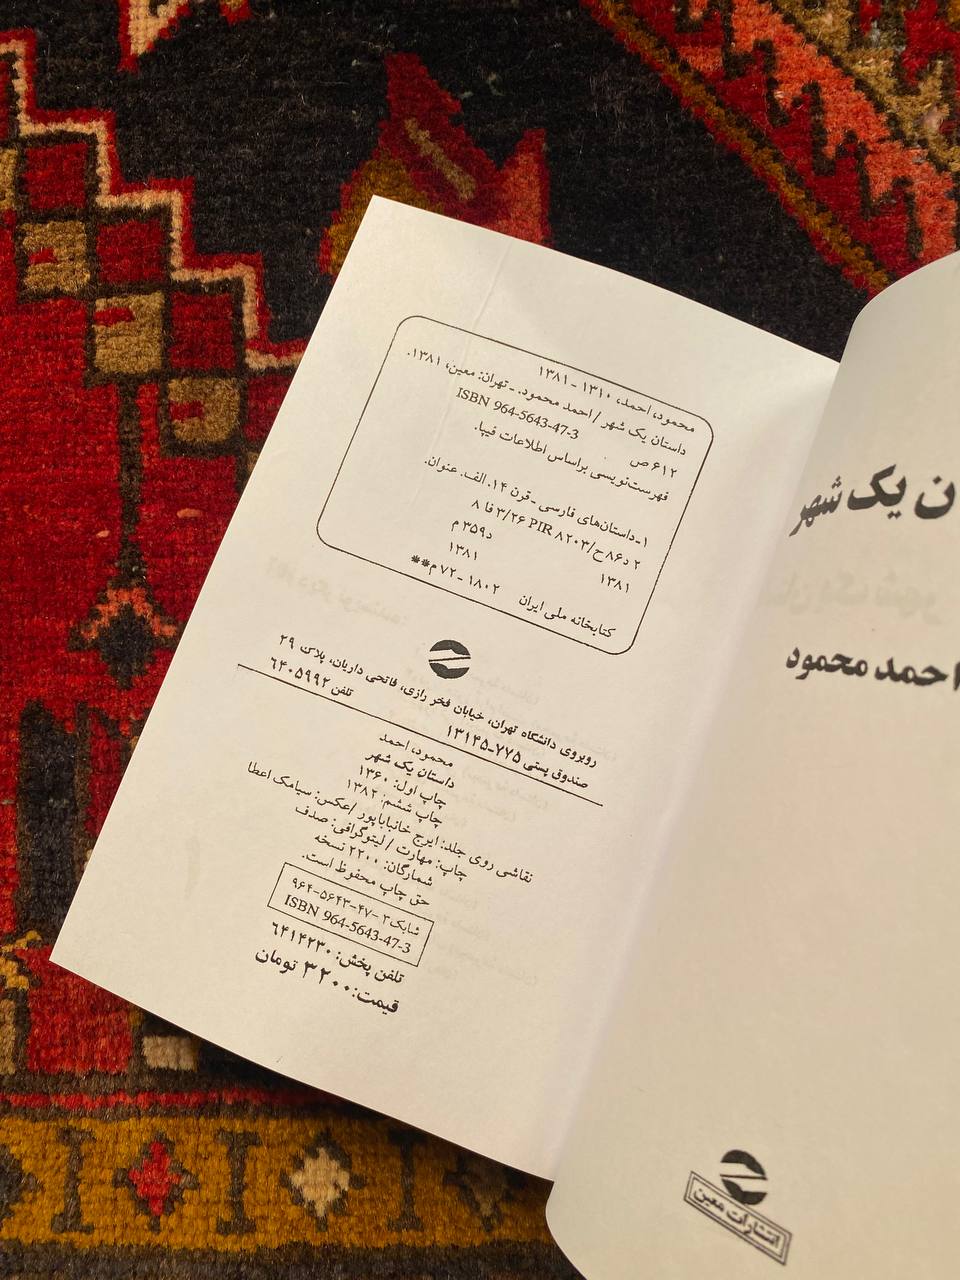 محمود، احمد، ۱۳۱۰ - ۱۳۸۱
داستان یک شهر / احمد محمود. ـ تهران: معین، ۱۳۸۱.
ISBN 964-5643-47-3
۶۱۲ ص
فهرست‌نویسی براساس اطلاعات فیپا.
۱ـ داستان‌های فارسی ـ قرن ۱۴. الف. عنوان.
۲ د ۸۶ ح / PIR ۸۲۰۳ ۳/۲۶ فا ۸
۱۳۸۱ د ۳۵۹ م
۱۳۸۱
کتابخانه ملی ایران ۱۸۰۲ - ۷۲ م**
روبروی دانشگاه تهران، خیابان فخر رازی، فاتحی داریان، پلاک ۲۹
صندوق پستی ۷۷۵-۱۳۱۴۵ تلفن ۶۴۰۵۹۹۲
محمود، احمد
داستان یک شهر
چاپ اول: ۱۳۶۰
چاپ ششم: ۱۳۸۲
نقاشی روی جلد: ایرج خانباباپور / عکس: سیامک اعطا
چاپ: مهارت / لیتوگرافی: صدف
شمارگان: ۲۲۰۰ نسخه
حق چاپ محفوظ است.
شابک ۳-۴۷-۵۶۴۳-۹۶۴
ISBN 964-5643-47-3
تلفن پخش: ۶۴۱۴۲۳۰
قیمت: ۳۲۰۰ تومان
ن یک شهر
احمد محمود
انتشارات معین